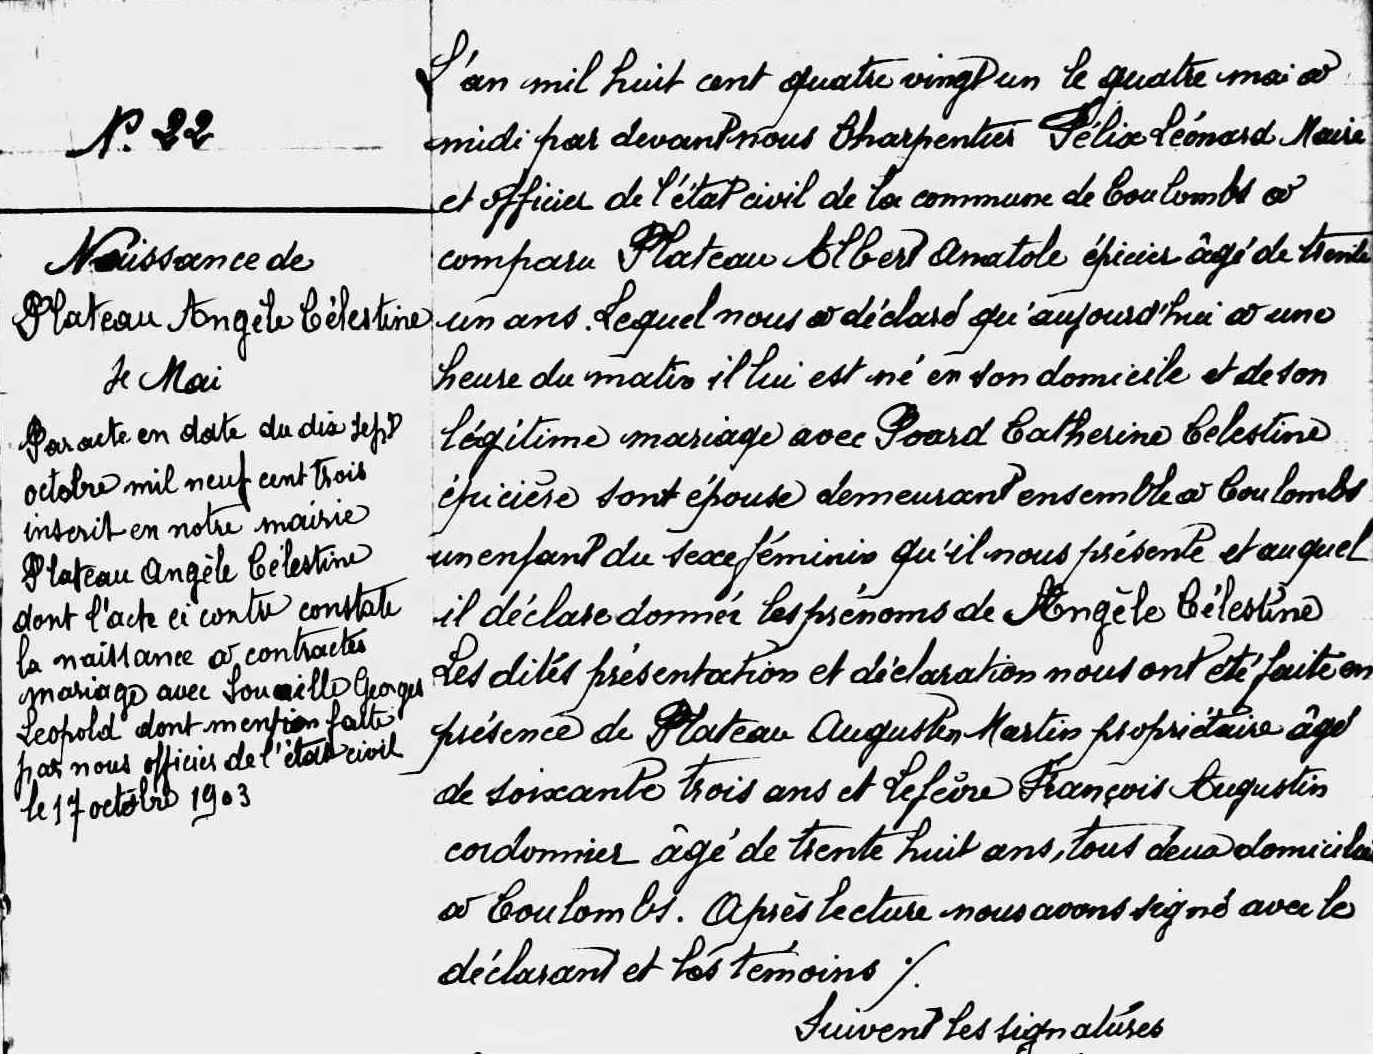 N°. 22
Naissance de
Plateau Angèle Célestine
4 Mai
Par acte en date du dix sept
octobre mil neuf cent trois
inscrit en notre mairie
Plateau Angèle Célestine
dont l'acte ci contre constate
la naissance a contracté
mariage avec Georges
Leopold dont mention faite
par nous officier de l'état civil
le 17 octobre 1903
L'an mil huit cent quatre vingt un le quatre mai à
midi par devant nous Charpentier Félix Léonard Maire
et officier de l'état civil de la commune de Coulombs a
comparu Plateau Albert Anatole épicier âgé de trente
un ans. Lequel nous a déclaré qu'aujourd'hui à une
heure du matin il lui est né en son domicile et de son
légitime mariage avec Poard Catherine Celestine
épicière sont épouse demeurant ensemble à Coulombs
un enfant du sexe féminin qu'il nous présente et auquel
il déclare donner les prénoms de Angèle Célestine
Les dités présentation et déclaration nous ont été faite en
présence de Plateau Augustin Martin propriétaire âgé
de soixante trois ans et Lefèvre François Augustin
cordonnier âgé de trente huit ans, tous deux domiciliés
à Coulombs. Après lecture nous avons signé avec le
déclarant et les témoins ./.
Suivent les signatures